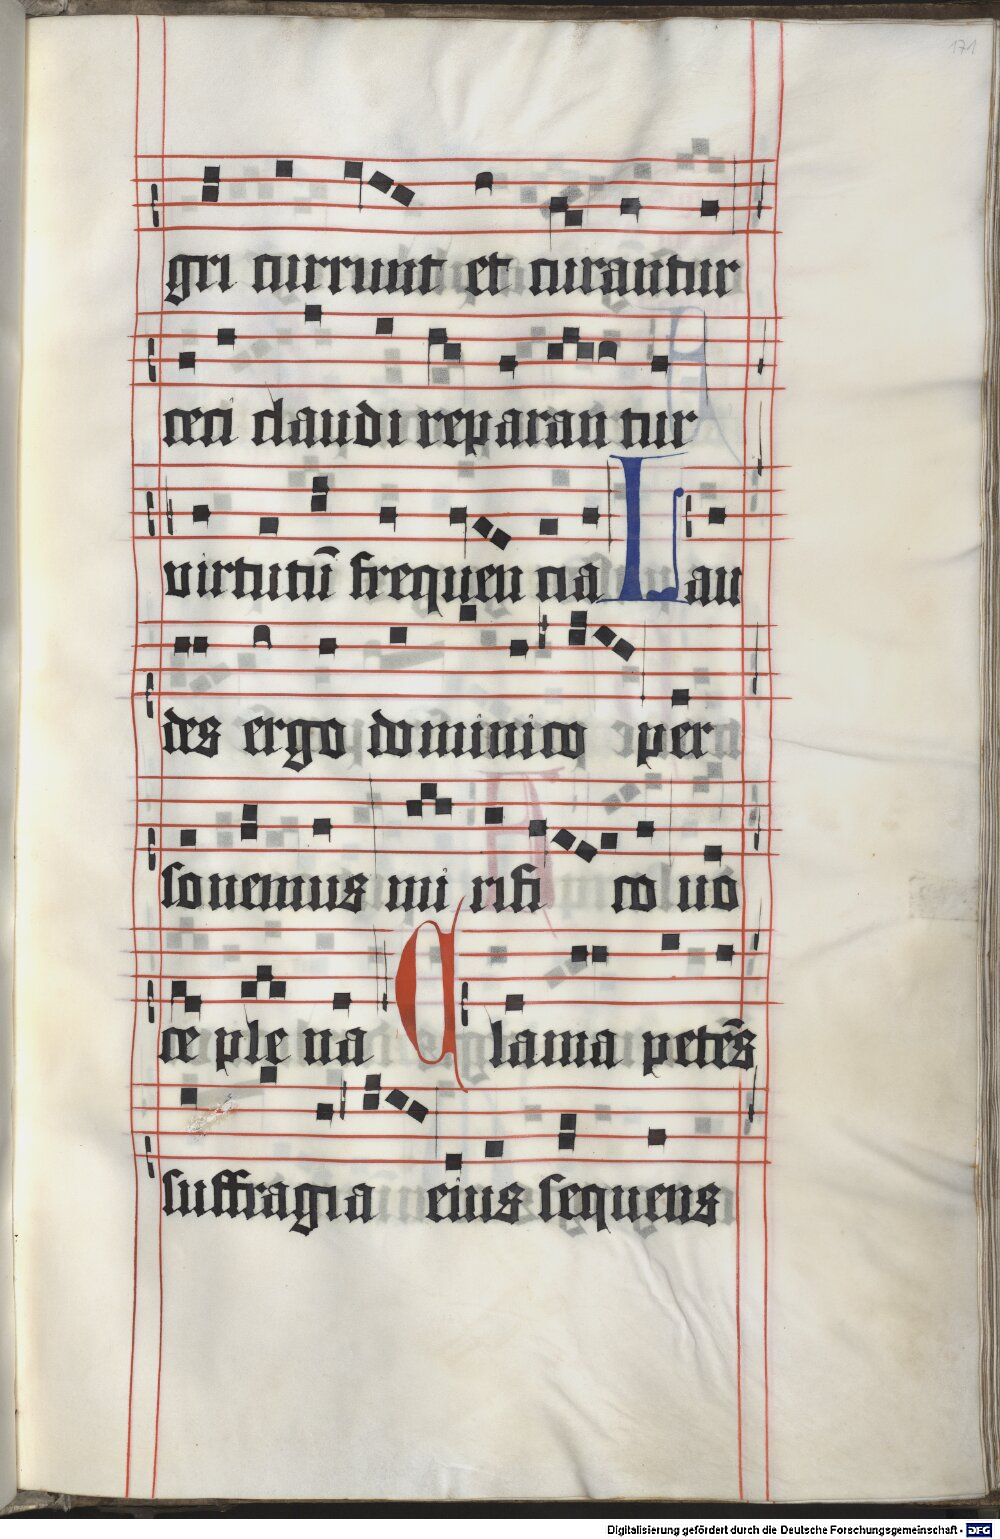 171
gri currunt et curantur
ceci claudi reparantur
virtutū frequen cia Lau
des ergo dominico per
sonemus mi rifi co uo
ce ple na Clama petēs
suffragia eius sequens
Digitalisierung gefördert durch die Deutsche Forschungsgemeinschaft - DFG